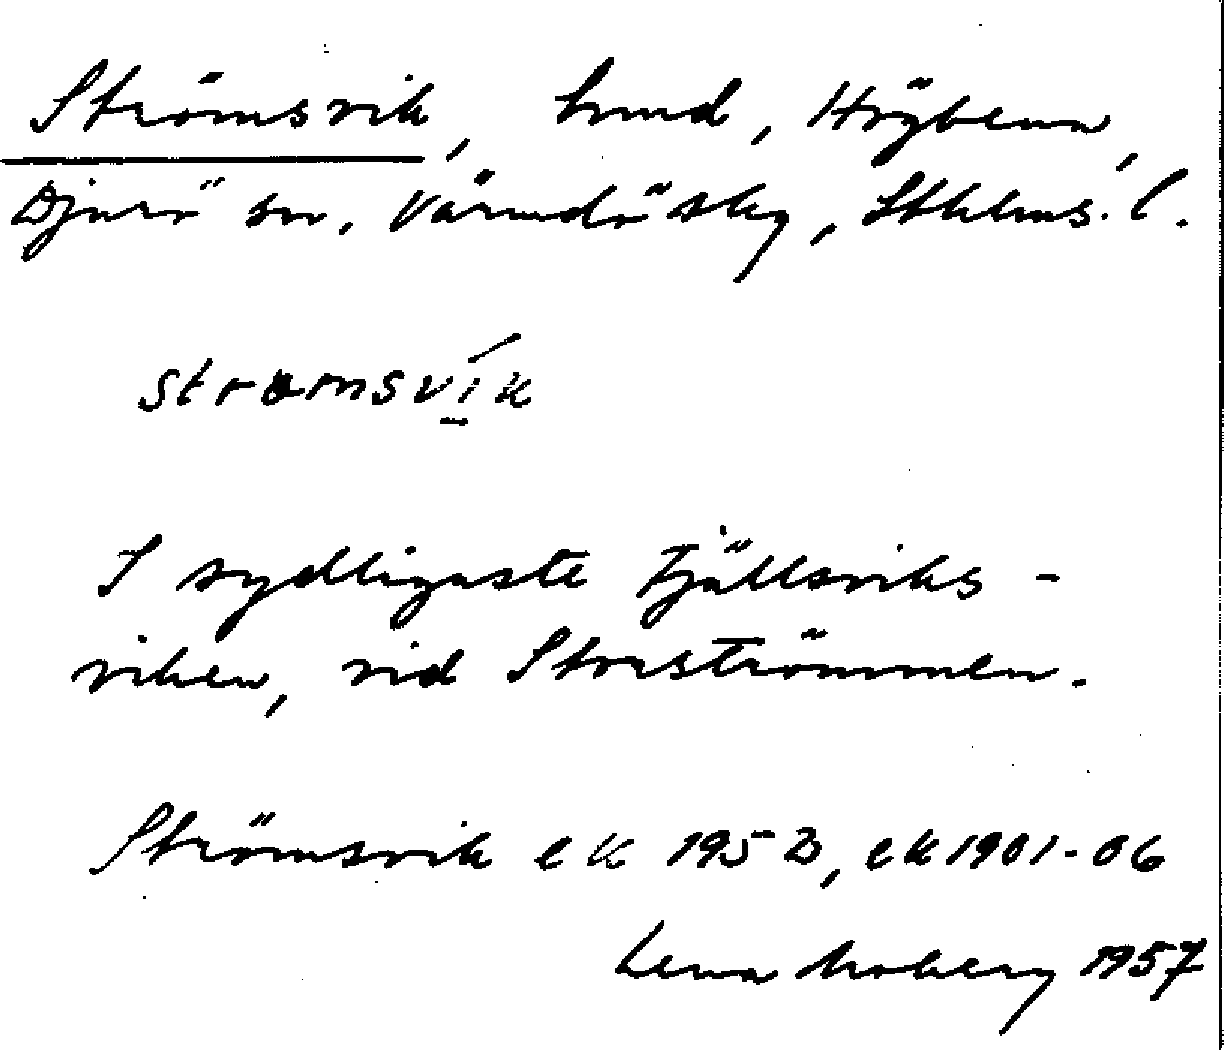 Strömsvik, Sund, Högbena,
Djurö sn, Värmdö skg, Sthlms. l.
strømsvík
I sydligaste Fjällsviks-
viken, vid Storströmmen.
Strömsvik ek 1952, ek 1901-06
Lena Moberg 1957